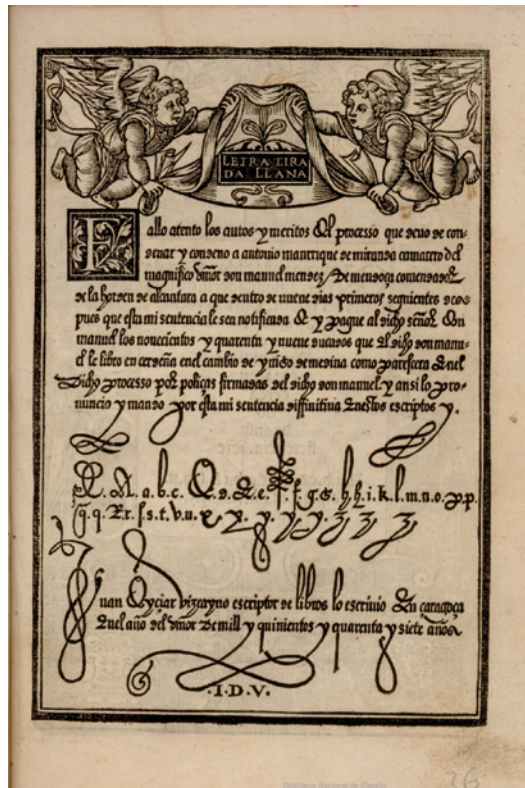 LETRA TIRA
DA LLANA
Fallo atento los autos y meritos del processo que deuo de con
denar y condeno a antonio manrique de miranda camarero del
magnifico señor don manuel mendez de mendoça comendador
de la horden de alcantara a que dentro de nueue dias primeros seguientes des
pues que esta mi sentencia le sea notificada de y pague al dicho señor don
manuel los nouecientos y quarenta y nueue ducados que el dicho don manu
el le libro en cerdeña en el cambio de yñigo de medina como paresçera en el
dicho processo por poliças firmadas del dicho don manuel y ansi lo pro
nuncio y mando por esta mi sentencia diffinitiua en estos escriptos y.
A. a. b. c. d. e. f. g. s. h. h. i. k. l. m. n. o. p. p.
q. q. R. r. s. s. t. v. u. x. y. y. y. z. z. z.
Juan de yciar vizcayno escriptor de libros lo escriuio en çaragoça
en el año del señor de mill y quinientos y quarenta y siete años
.I.D.V.
36